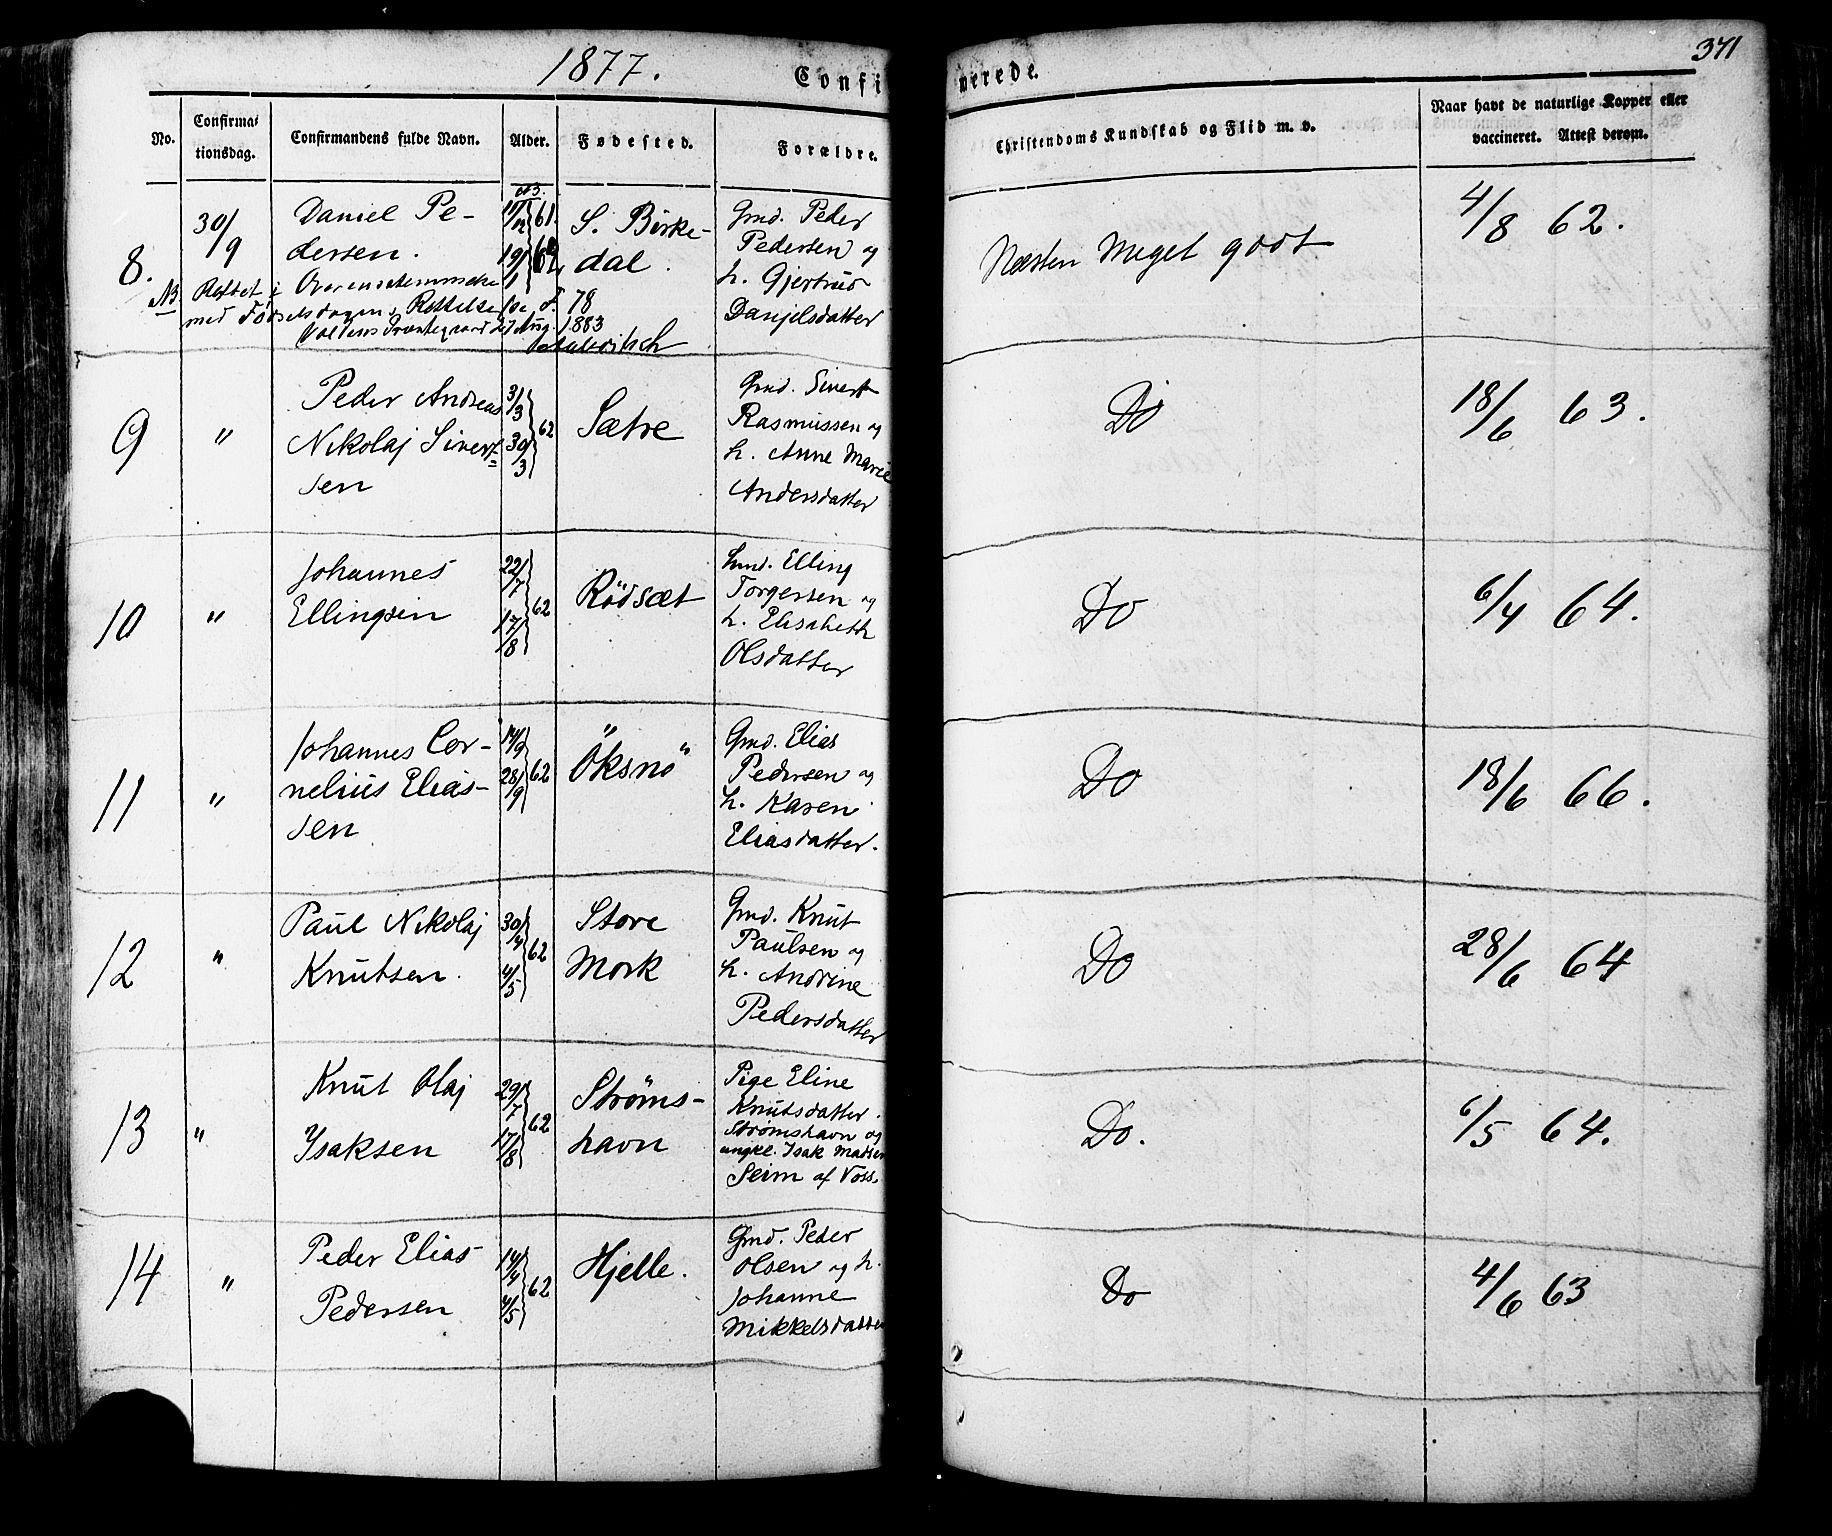 1877.
Confi
merede.
371
No.
Confirma-
tionsdag.
Confirmandens fulde Navn.
Alder.
Fødested.
Forældre.
Christendoms Kundskab og Flid m. v.
Naar havt de naturlige Kopper eller
vaccineret. Attest derom.
8.
30/9
Daniel Pe-
dersen.
NB.
61
19/1 62
S. Birke-
dal.
Gmd. Peder
Pedersen og
h. Gjertrud
Danjelsdatter
Næsten Meget godt
4/8 62.
NB Rettet i Overensstemmelse
med Fødselsdagens Rettelse
Voldens Præstegaard 27 Aug. 1883
9
"
Peder Andreas
Nikolaj Sivert-
sen
3/3
30/3 62
Sætre
Gmd. Sivert
Rasmussen og
h. Anne Marie
Andersdatter
Do
18/6 63.
10
"
Johannes
Ellingsen
22/7
17/8 62
Rödsæt
Elling
Torgersen og
h. Elisabeth
Olsdatter
Do
6/4 64.
11
"
Johannes Cor-
nelius Elias-
sen
14/9
28/9 62
Öksnö
Gmd. Elias
Pedersen og
h. Karen
Eliasdatter.
Do
18/6 66.
12
"
Paul Nikolaj
Knutsen.
30/4
4/5 62
Store
Mork
Gmd. Knut
Paulsen og
h. Andrine
Pedersdatter
Do
28/6 64
13
"
Knut Olaj
Isaksen
29/7
17/8 62
Ströms-
havn
Pige Eline
Knutsdatter.
Strömshavn og
ungkl. Isak Madsen
Seim af Voss.
Do.
6/5 64.
14
"
Peder Elias
Pedersen
14/4
4/5 62
Hjelle.
Gmd. Peder
Olsen og h.
Johanne
Mikkelsdatter
Do
4/6 63